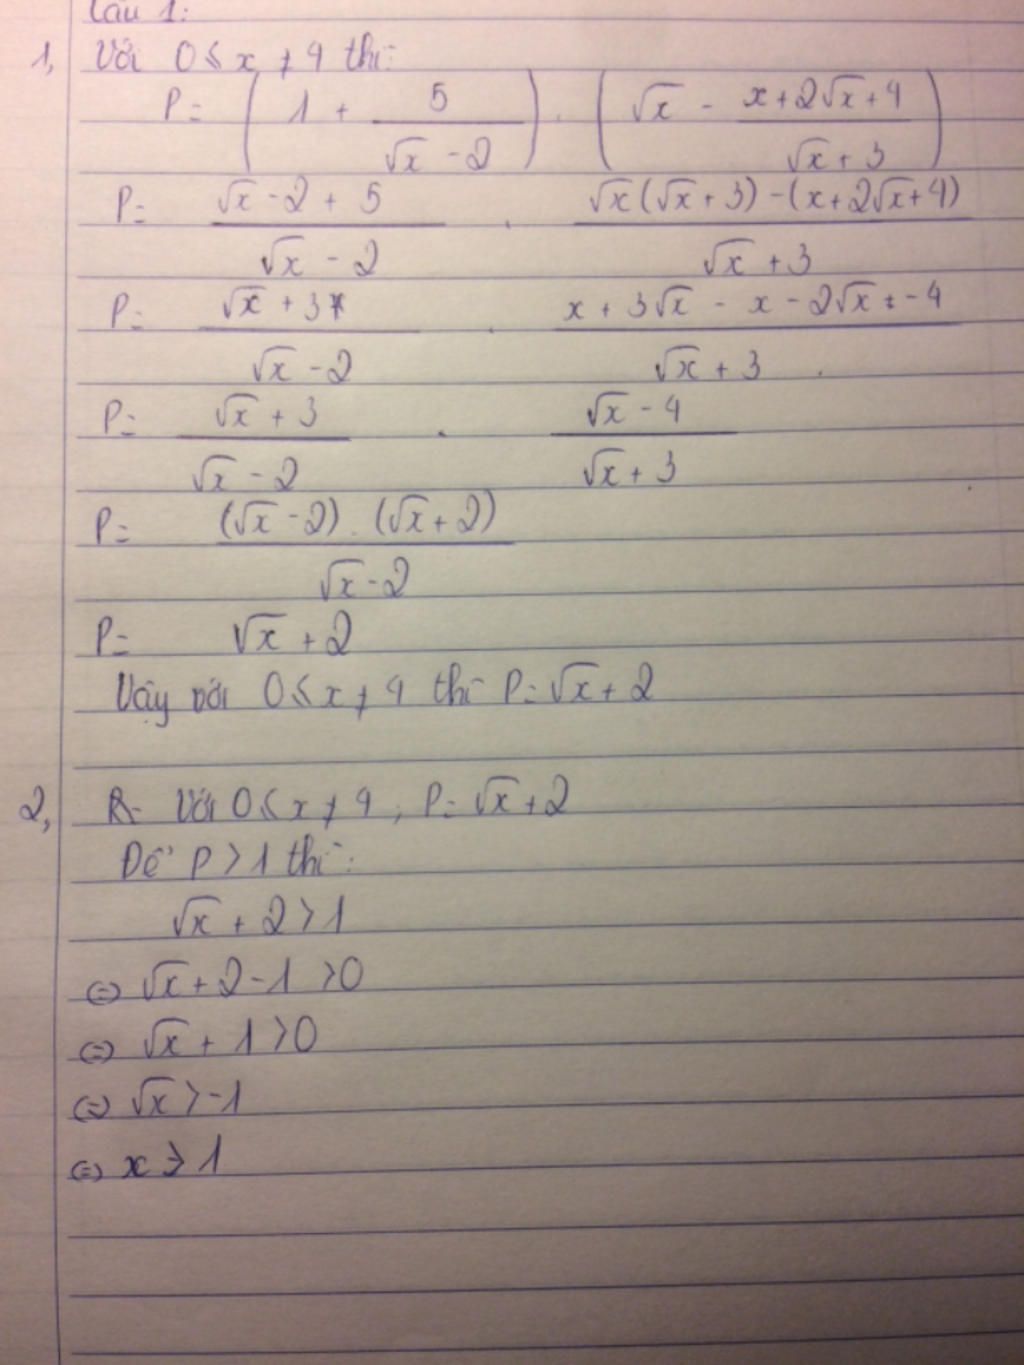 Câu 1:
1, Với 0 ≤ x ≠ 4 thì:
P = (1 + 5/(√x - 2)) . (√x - (x + 2√x + 4)/(√x + 3))
P = (√x - 2 + 5)/(√x - 2) . (√x(√x + 3) - (x + 2√x + 4))/(√x + 3)
P = (√x + 3)/(√x - 2) . (x + 3√x - x - 2√x - 4)/(√x + 3)
P = (√x + 3)/(√x - 2) . (√x - 4)/(√x + 3)
P = ((√x - 2) . (√x + 2))/(√x - 2)
P = √x + 2
Vậy với 0 ≤ x ≠ 4 thì P = √x + 2
2, Với 0 ≤ x ≠ 4, P = √x + 2
Để P > 1 thì:
√x + 2 > 1
⇔ √x + 2 - 1 > 0
⇔ √x + 1 > 0
⇔ √x > -1
⇔ x > 1